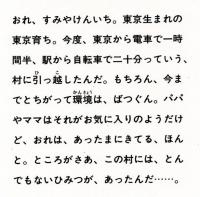 おれ、すみやけんいち。東京生まれの
東京育ち。今度、東京から電車で一時
間半、駅から自転車で二十分っていう、
村に引っ越したんだ。もちろん、今ま
でとちがって環境は、ばつぐん。パパ
やママはそれがお気に入りのようだけ
ど、おれは、あったまにきてる、ほん
と。ところがさあ、この村には、とん
でもないひみつが、あったんだ……。